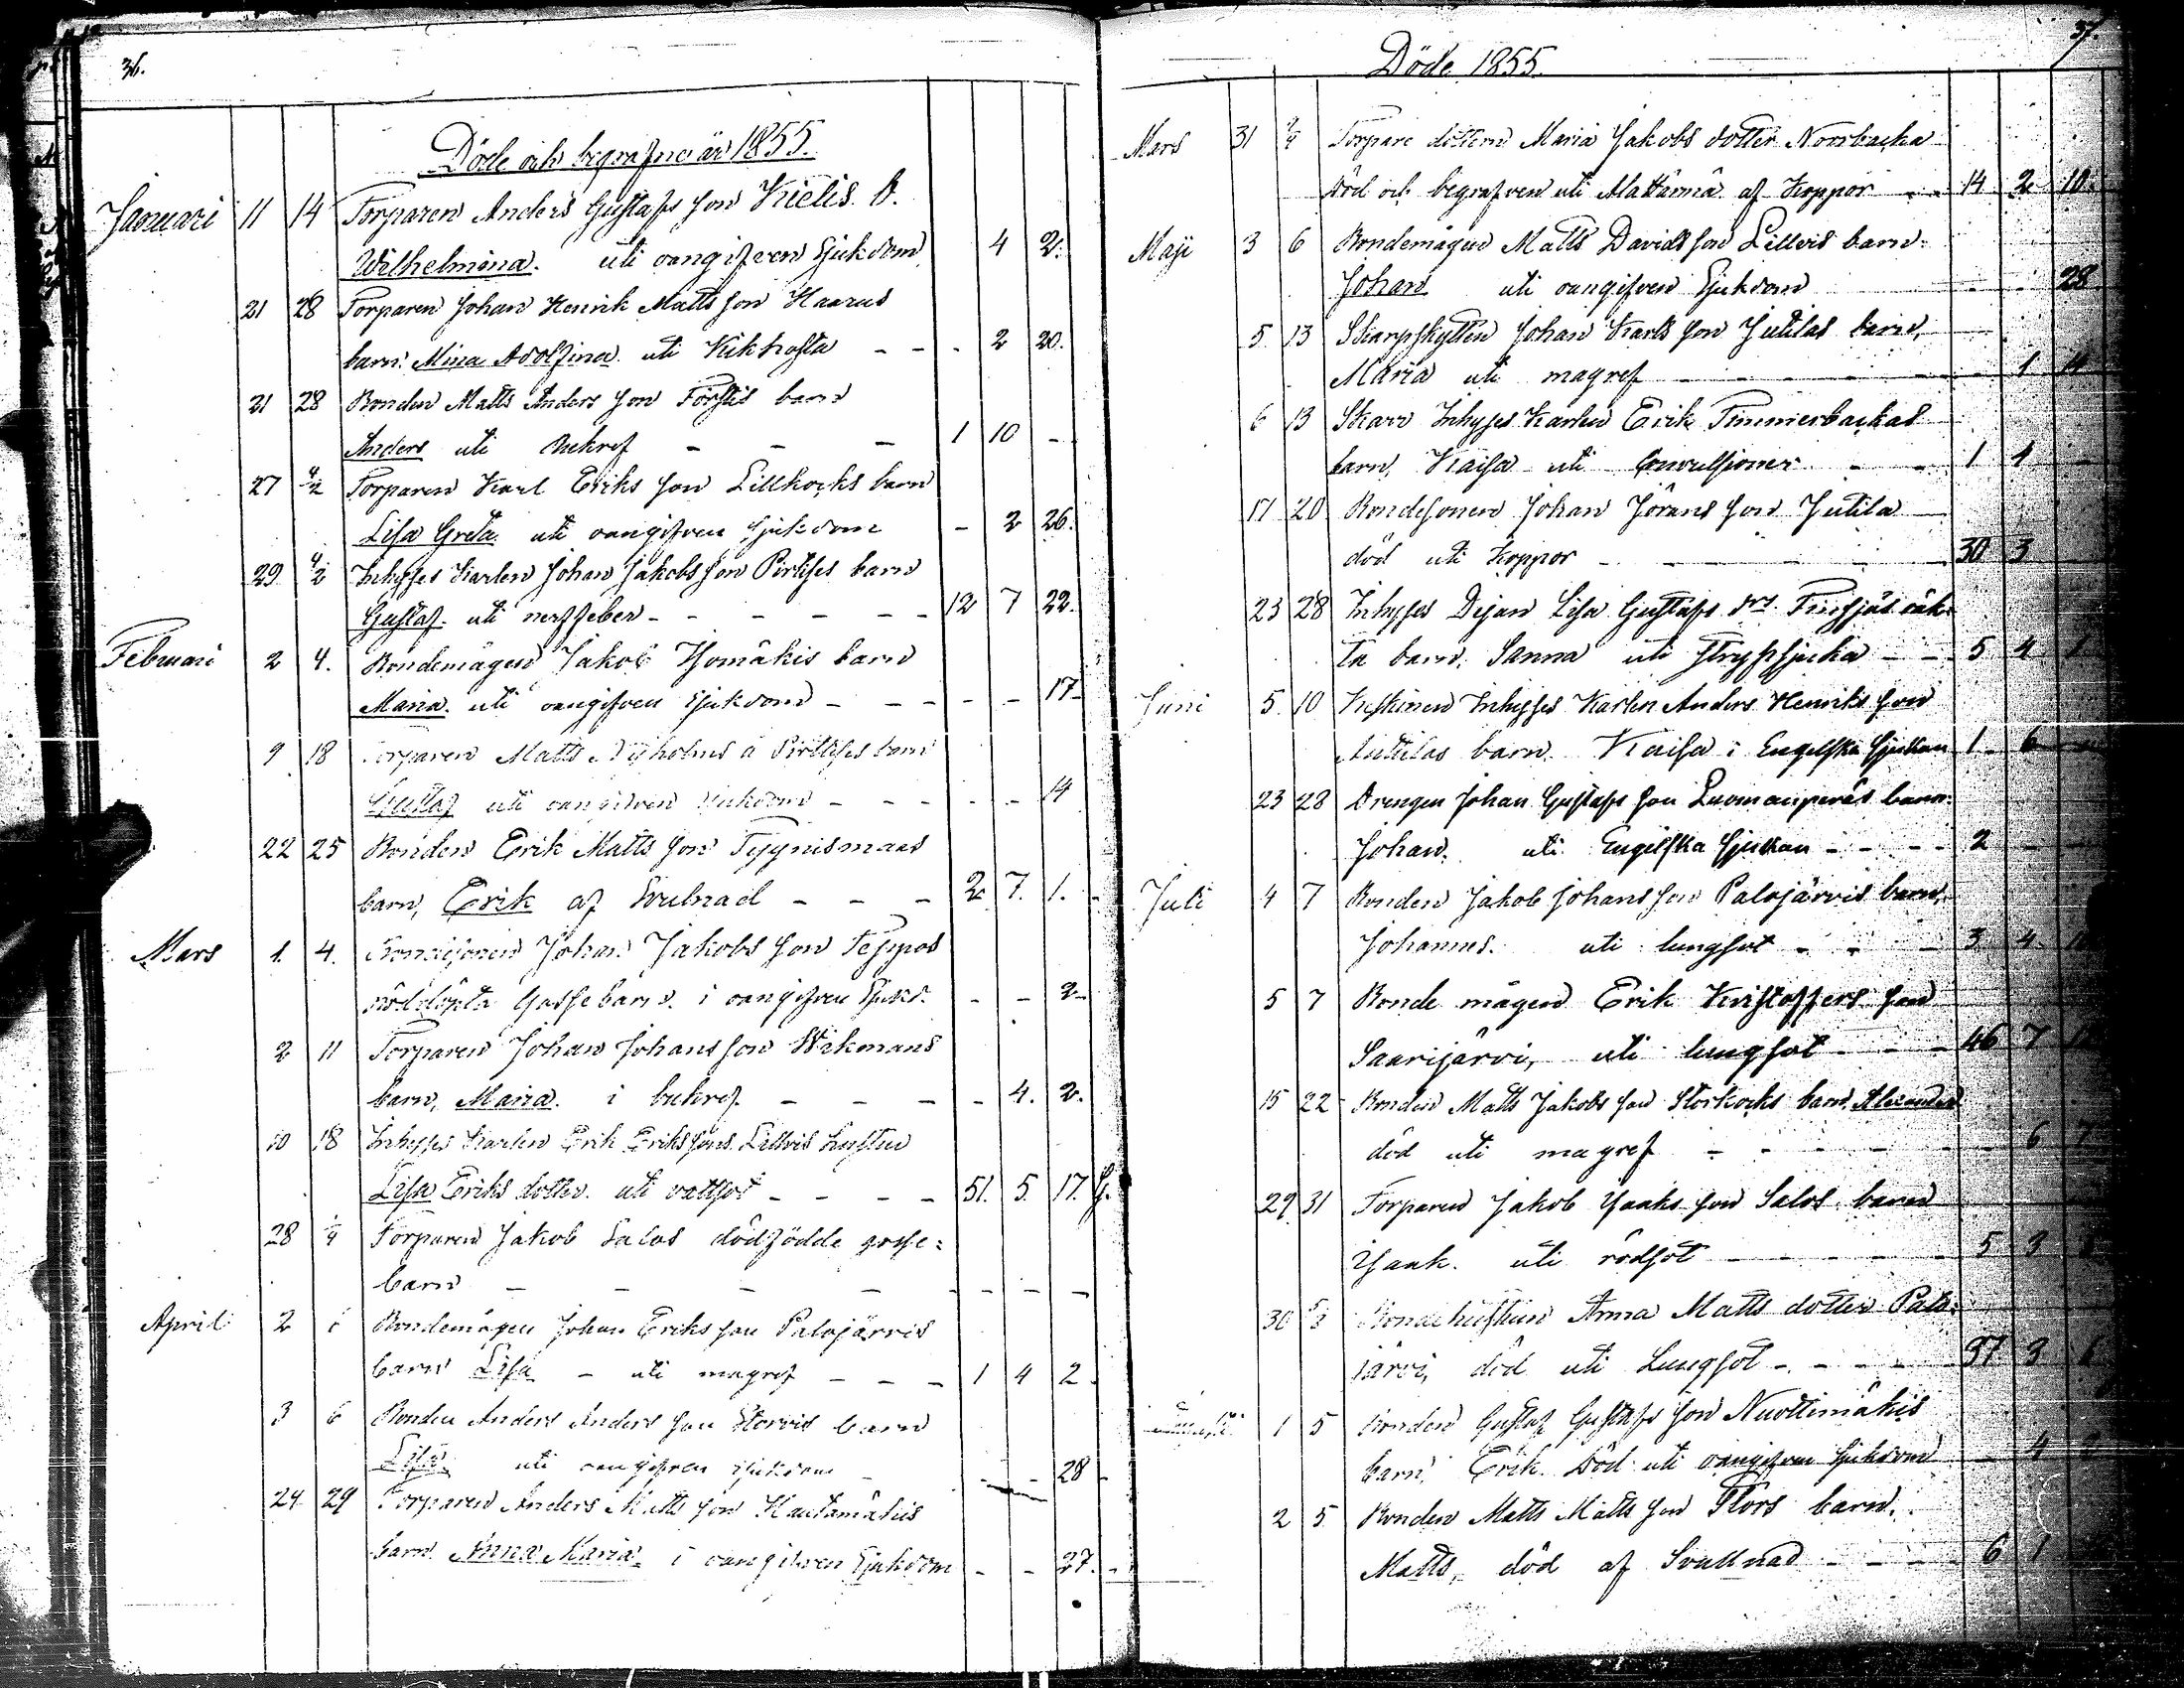 36.
Döde och begrafne år 1855.
Januari 11 14 Torparen Anders Gustafsson Kielis D.
Wilhelmina. uti oangifven Sjukdom 4 2.
21 28 Torparen Johan Henrik Mattsson Haarus
barn: Mina Adolfina. uti Kikhosta - - - 2 20.
21 28 Bonden Matts Andersson Förstis barn
Anders uti Bukref - - - 1 10 -
27 4/2 Torparen Karl Eriksson Lillkocks barn
Lisa Greta. uti oangifven sjukdom - 2 26.
29 4/2 Inhyses Karlen Johan Jakobsson Pirttises barn
Gustaf. uti nerffeber - - - - - 12 7 22.
Februari 2 4. Bondemågen Jakob Homäkis barn
Maria. uti oangifven sjukdom - - - - - 17-
9 18 Torparen Matts Nyholms å Pirttises barn
Gustaf uti oangifven sjukdom - - - - - 14
22 25 Bonden Erik Mattsson Tyynismaas
barn, Erik af Svulnad - - - 2 7. 1. -
Mars 1. 4. Bondesonen Johan Jakobsson Teppos
nöddöpta Gossebarn. i oangifven Sjukd. - - 2-
2 11 Torparen Johan Johansson Wikmans
barn, Maria. i bukref. - - - - 4. 2.
10 18 Inhyses Karlen Erik Erikssons Lillvis hustru
Lisa Eriks dotter. uti vattsot - - - - 51. 5. 17. G.
28 1/4 Torparen Jakob Salos dödfödde gosse=
barn - - - - - - -
April 2 Bondemågen Johan Eriksson Palojärvis
barn Lisa - uti magref - - - 1 4 2.
3 6 Bonden Anders Andersson Storvis barn
Lisa uti oangifven sjukdom - - - 28 -
24 29 Torparen Anders Mattsson Hautamäkis
barn Anna Maria i oangifven Sjukdom - - 27. -
37.
Döde 1855.
Mars 31 Torpare dottern Maria Jakobs dotter Norrbacka
död och begrafven uti Alattärmä af Koppor - - 14 2 10.
Maji 3 6 Bondemågen Matts Davidsson Lillvis barn:
Johan uti oangifven Sjukdom - - 28
5 13 Skarpskytten Johan Karlsson Jutilas barn,
Maria uti magref - - - - - 1 14
6 13 Inhyses Karlen Erik Timmerbackas
barn, Kaisa uti Convulsioner - - 1 1
17 20 Bondesonen Johan Jöransson Jutila
död uti Koppor - - - 30 3
23 28 Inhyses Lisa Gustafs dr oäk-
ta barn, Sanna uti strypsjuka - - 5 4 1
Juni 5 10 Inhyses Karlen Anders Henriksson
barn. Kaisa i Engelska Sjukan 1 6
23 28 Drengen Johan Gustafsson Luomanperäs barn:
Johan. uti Engelska Sjukan - - - - 2
Juli 4 7 Bonden Jakob Johansson Palojärvis barn,
Johannes. uti lungsot - - - 3 4
5 7 Bonde mågen Erik Kristoffersson
Saarijärvi, uti lungsot - - - 46 7
15 22 Bonden Matts Jakobsson Storkocks barn, Alexander
död uti magref - - - - - 6 7
29 31 Torparen Jakob Isaksson Salos barn
Isaak. uti rödsot - - - - 5 3
30 5/8 Bondehustrun Anna Matts dotter Palo-
järvi, död uti Lungsot - - - - 37 3 6
1 5 Bonden Gustaf Gustafsson Nuottimäkis
barn, Erik. död uti oangifven sjukdom - 4
2 5 Bonden Matts Mattsson Flors barn.
Matts, död af Svullnad - - - 6 1